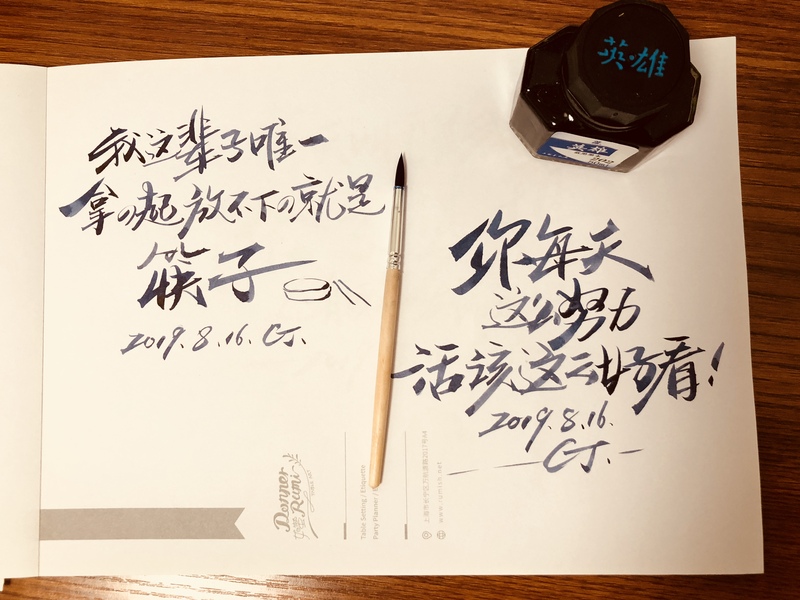 我这辈子唯一
拿の起放不下の就是
筷子
2019.8.16. CJ.
你每天
这么努力
活该这么好看!
2019.8.16.
CJ.
英雄
英雄
202
Donner
Rumi
Table Setting / Etiquette
Party Planner /
www.rumish.net